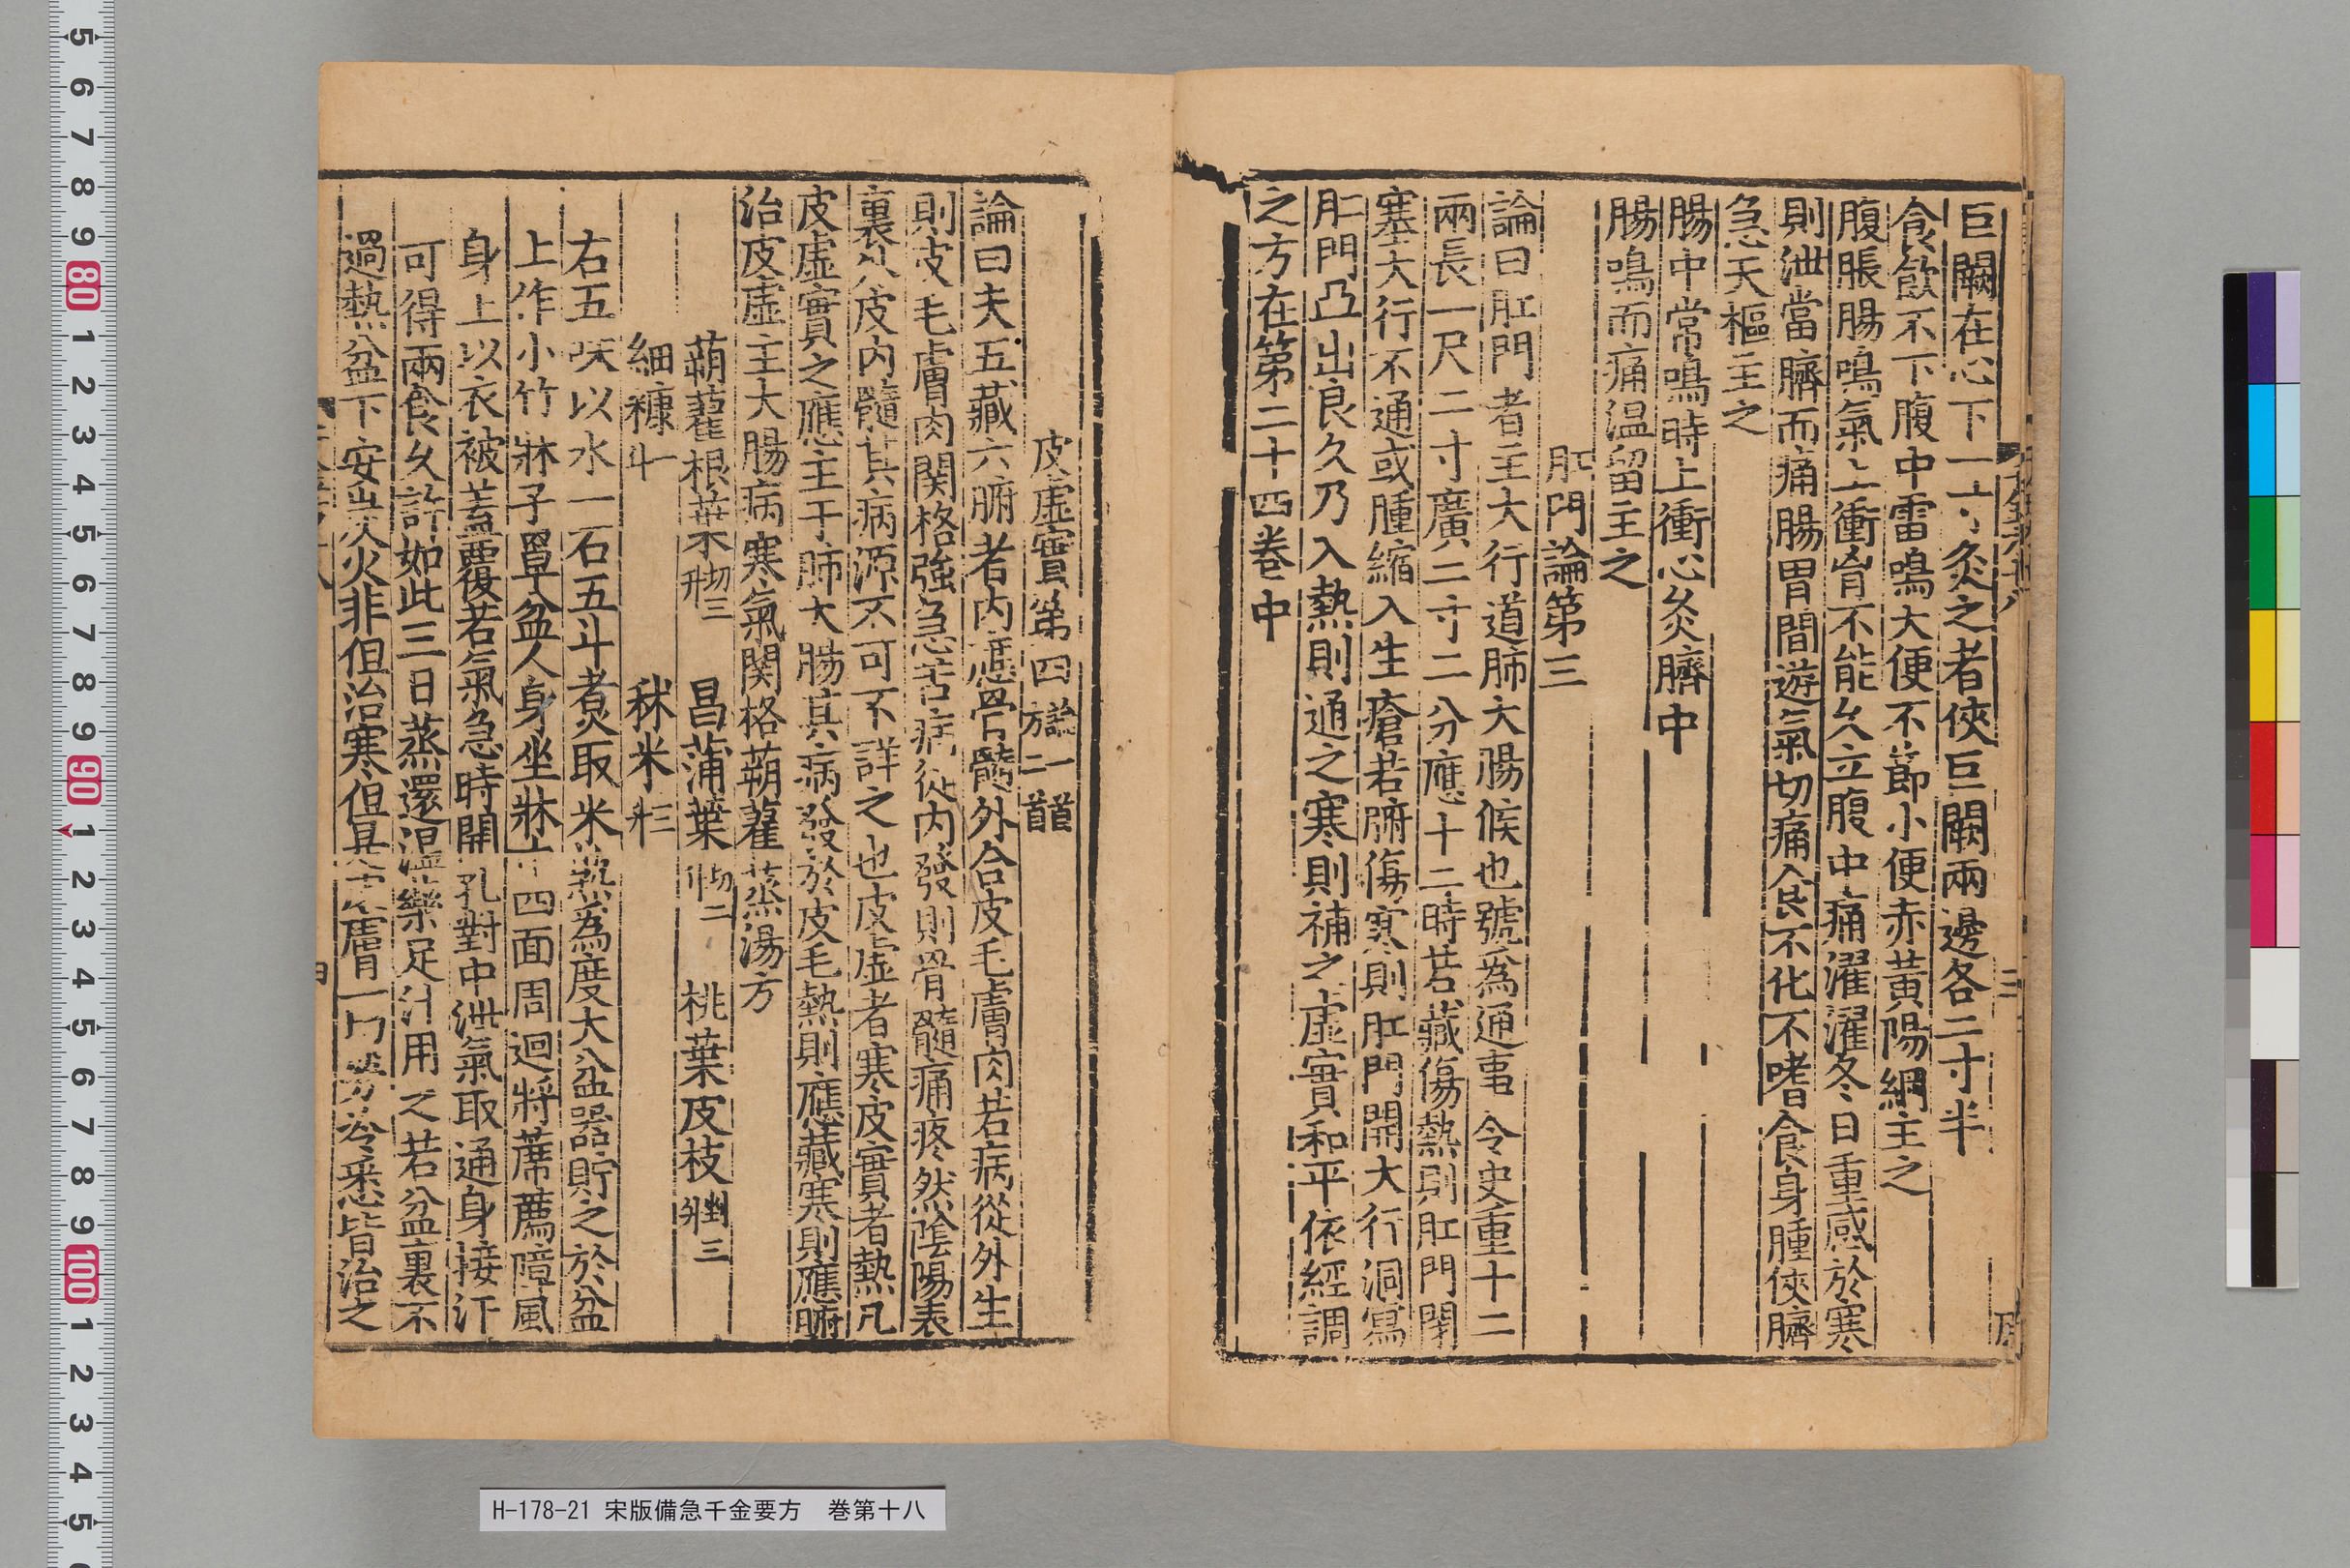 巨闕在心下一寸灸之者俠巨闕兩邊各二寸半
食飲不下腹中雷鳴大便不節小便赤黃陽綱主之
腹脹腸鳴氣上衝胷不能久立腹中痛濯濯冬日重感於寒
則泄當臍而痛腸胃間遊氣切痛食不化不嗜食身腫俠臍
急天樞主之
腸中常鳴時上衝心灸臍中
腸鳴而痛温留主之
肛門論第三
論曰肛門者主大行道肺大腸候也號爲通事令史重十二
兩長一尺二寸廣二寸二分應十二時若藏傷熱則肛門閉
塞大行不通或腫縮入生瘡若腑傷寒則肛門開大行洞寫
肛門凸出良久乃入熱則通之寒則補之虛實和平依經調
之方在第二十四卷中
皮虛實第四 論一首 方二首
論曰夫五藏六腑者内應骨髓外合皮毛膚肉若病從外生
則皮毛膚肉関格強急若病從内發則骨髓痛疼然陰陽表
裏外皮内髓其病源不可不詳之也皮虛者寒皮實者熱凡
皮虛實之應主于肺大腸其病發於皮毛熱則應藏寒則應腑
治皮虛主大腸病寒氣関格蒴藋蒸湯方
蒴藋根葉切三升 昌蒲葉切二升 桃葉皮枝剉三升
細糠一斗 秫米三升
右五味以水一石五斗煮取米熟爲度大盆器貯之於盆
上作小竹牀子罩盆人身坐牀上四面周迴將蓆薦障風
身上以衣被蓋覆若氣急時開孔對中泄氣取通身接汗
可得兩食久許如此三日蒸還温藥足汁用之若盆裏不
過熱盆下安炭火非但治寒但是皮膚一切勞冷悉皆治之
H-178-21 宋版備急千金要方 巻第十八